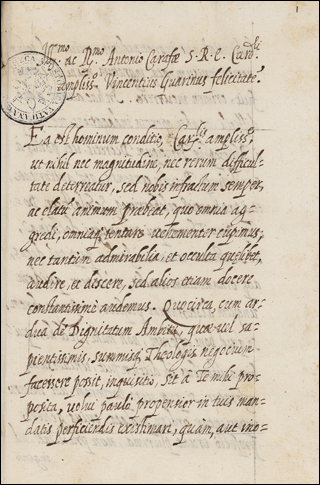 1
Ill.mo ac R.mo Antonio Carafæ S. R. E. Card.li
ampliss.o Vincentius Guarinus felicitatē.
Ea est hominum conditio, Car.lis ampliss.e
ut nihil nec magnitudine, nec rerum difficul-
tate deterreatur, sed nobis infractum semper,
ac elatū animum præbeat, quo omnia ag-
gredi, omniaq; tentare uehementer cupimus;
nec tantum admirabilia, et occulta quælibet,
audire, et discere, sed alios etiam docere
constantissimè audemus. Quocirca, cum ar-
dua de Dignitatum Ambitu, quæ uel sa-
pientissimis, summisq; Theologis negocium
facessere posit, inquisitio, sit à Te mihi pro-
posita, uolui paulò propensior in tuis man-
datis perficiendis existimari, quam, aut ino-